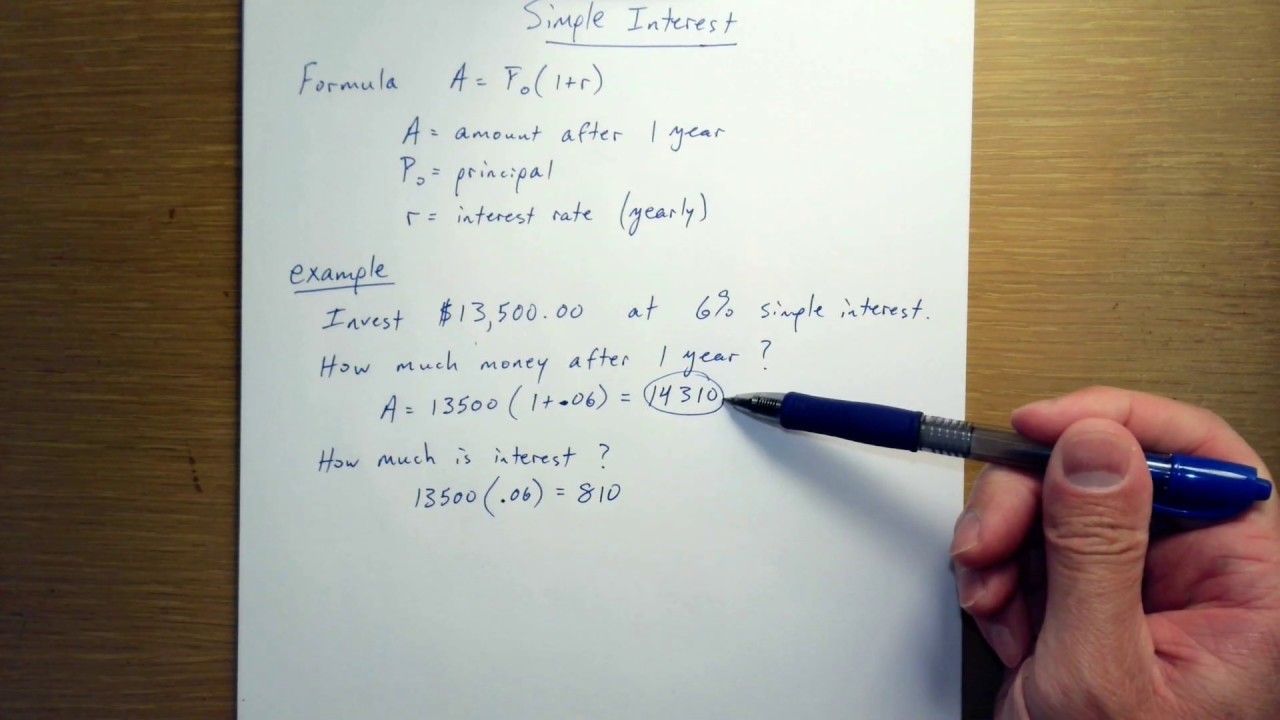 Simple Interest
Formula A = P₀(1+r)
A = amount after 1 year
P₀ = principal
r = interest rate (yearly)
example
Invest $13,500.00 at 6% simple interest.
How much money after 1 year ?
A = 13500 (1+.06) = 14310
How much is interest ?
13500(.06) = 810